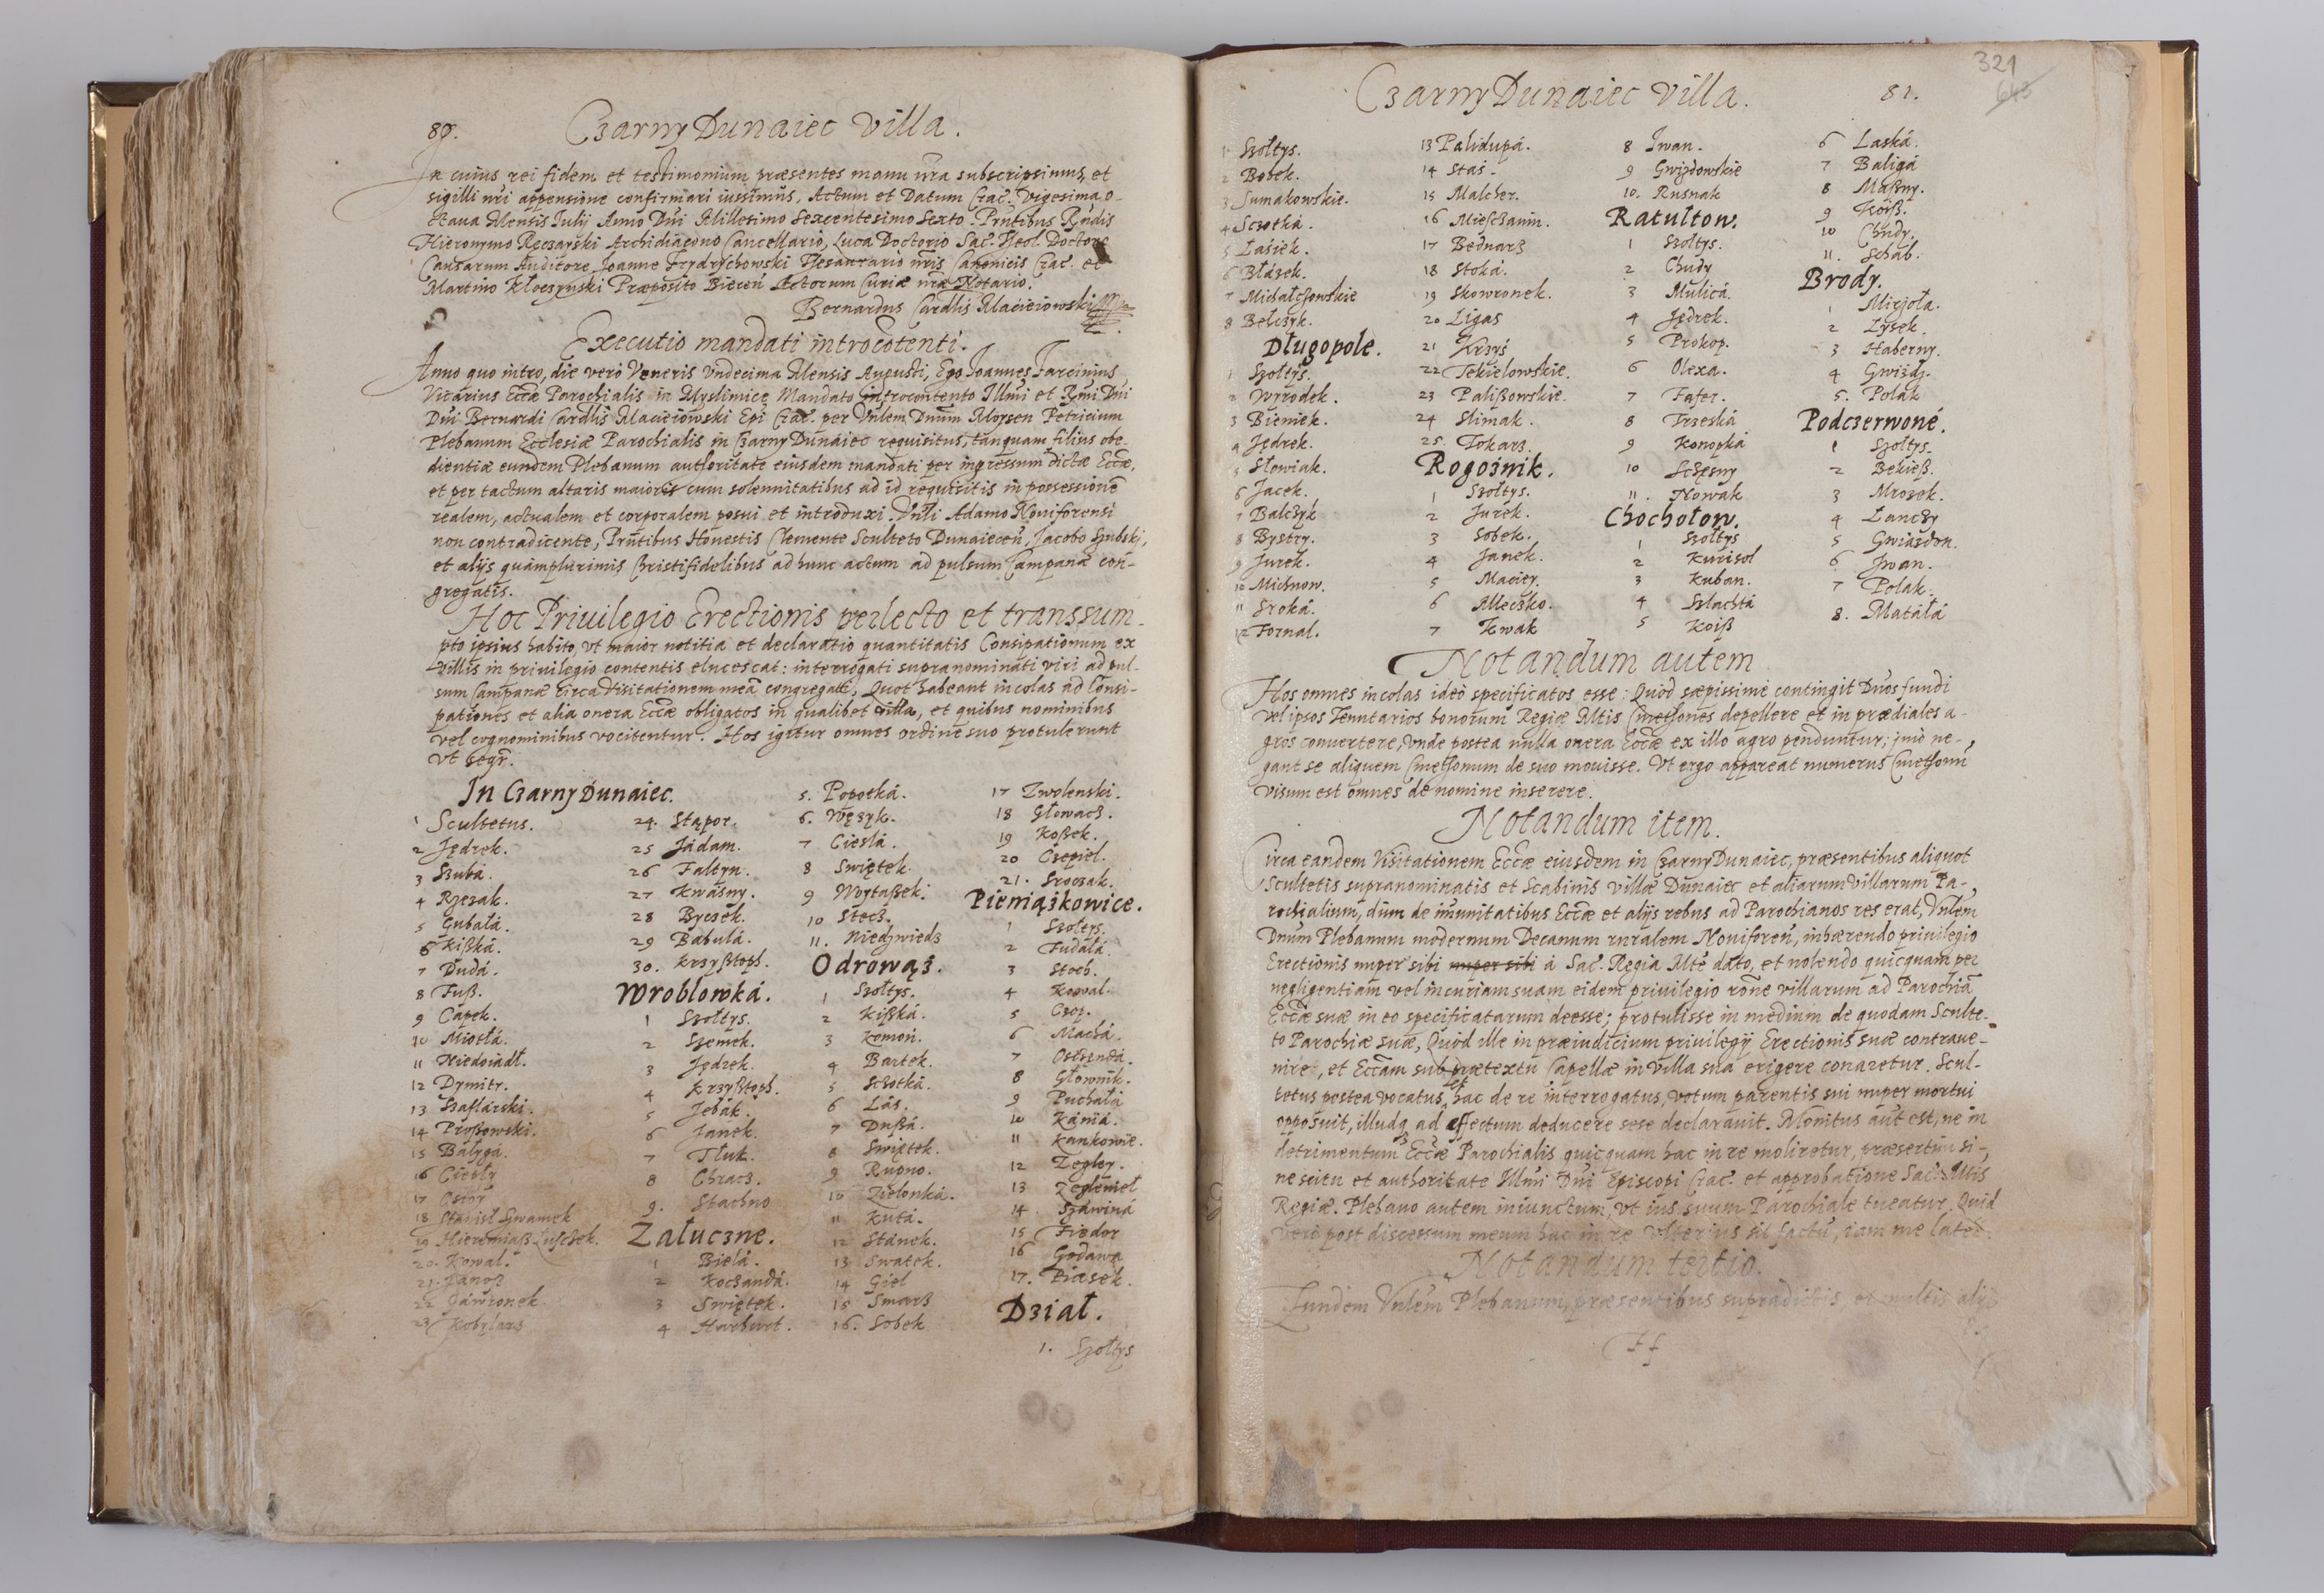 80.
Czarny Dunaiec Villa.
In cuius rei fidem et testimonium præsentes manu nra subscripsimus, et
sigilli nri appensione confirmari iussimus, Actum et Datum Crac. Vigesima o-
ctaua Mensis Iulij Anno Dni Millesimo Sexcentesimo Sexto. Pntibus Rndis
Hieronymo Archidiacono Cancellario, Luca Doctorio Sac. Theol. Doctore
Causarum Auditore, Joanne Frydrychowski Thesaurario nris Canonicis Crac. et
Martino Kłoczynski Præposito Biecen Actorum Curiæ nræ Notario.
Bernardus Cardlis Macieiowski
Executio mandati introcotenti.
Anno quo intro, die verò Veneris Vndecima Mensis Augusti, Ego Joannes Farcinius
Vicarius Eccæ Parochialis in Myslimice Mandato introcontento Illmi et Rmi Dni
Dni Bernardi Cardlis Macieiowski Epi Crac. per Vnlem Dnum Moysen Petricium
Plebanum Ecclesiæ Parochialis in Czarny Dunaiec requisitus, tanquam filius obe-
dientiæ eundem Plebanum authoritate eiusdem mandati per ingressum dictæ Eccæ,
et per tactum altaris maioris cum solennitatibus ad id requisitis in possessionē
realem, actualem et corporalem posui et introduxi. Vnli Adamo Nouiforensi
non contradicente, Pntibus Honestis Clemente Sculteto Dunaiecen, Jacobo
et alijs quamplurimis Christifidelibus ad hunc actum ad pulsum Campanæ con-
gregatis.
Hoc Priuilegio Erectionis perlecto et transsum-
pto ipsius habito, vt maior notitia et declaratio quantitatis Consipationum ex
villis in priuilegio contentis elucescat: interrogati supranominati viri ad pul-
sum Campanæ circa Visitationem meā congregati, Quot habeant incolas ad Consi-
pationes et alia onera Eccæ obligatos in qualibet villa, et quibus nominibus
vel cognominibus vocitentur. Hos igitur omnes ordine suo protulerunt
vt segr.
In Czarny Dunaiec.
1 Scultetus.
2 Jędrek.
3 Szuba.
4 Rzezak.
5 Gubała.
6 Kißká.
7 Dudá.
8 Fuß.
9 Cápek.
10 Miotłá.
11 Niedoiadł.
12 Dymitr.
13 Szaflárski.
14 Proßowski.
15 Bályga.
16 Ciesly
17
18 Stanisł Szwamek
19 Hieremiaß
20. Kowal.
21. Janoß
22 Gáwronek.
23 Kobylarz
24. Stąpor.
25 Jádam.
26 Faltyn.
27 Kwásny.
28 Byczek.
29 Bábulá.
30. Krzyßtoph.
Wroblowká.
1 Szołtys.
2 Szemek.
3 Jędrek.
4 Krzyßtoph.
5 Jebák.
6 Janek.
7 Tłuk.
8 Chracz.
9. Stachno
Załuczne.
1 Bielá.
2 Kochandá.
3 Swiętek.
4
5. Popotká.
6. Węzyk.
7 Cieslá.
8 Swiętek.
9 Woytaßek.
10 Stecz.
11. Niedzwiedz
Odrowąż.
1 Szołtys.
2 Kißká.
3 Komon.
4 Bartek.
5 Sczotká.
6 Lás.
7 Dußá.
8 Swiętek.
9 Rupno.
10 Zielonká.
11 Kutá.
12 Stánek.
13 Swatek.
14 Giel
15 Smarz
16. Sobek
17 Zwolenski.
18 Głowacz.
19 Koßek.
20 Czepiel.
21. Sroczak.
Pieniążkowice.
1 Szołtys.
2 Fudálá.
3 Stoch.
4 Kowal.
5 Czop.
6 Machá.
7
8 Głownik.
9 Puchałá
10 Kániá.
11 Kankowie.
12 Zegler.
13
14. Szawiná
15 Fiedor
16 Godawa
17. Piasek.
Dział.
1. Szołtys
321
645
Czarny Dunaiec Villa.
81.
1 Szołtys.
2 Bobek.
3 Sumakowskie.
4 Sczotká.
5 Lásiek.
6 Błázek.
7 Michalczowskie
8 Bełczyk.
Długopole.
1 Szołtys.
2 Wyrodek.
3 Bieniek.
4 Jędrek.
5 Słowiak.
6 Jacek.
7 Balczyk
8 Bystry.
9 Jurek.
10 Michnow.
11 Sroká.
12 Fornal.
13 Palidupá.
14 Stás.
15 Malcher.
16 Mieszczanin.
17 Bednarz
18 Stoká.
19 Skowronek.
20 Ligas
21 Krzys
22 Tekielowskie.
23 Palißowskie.
24 Slimak.
25. Tokarz.
Rogoźnik.
1 Szołtys.
2 Jurek.
3 Sobek.
4 Janek.
5 Maciey.
6 Mleczko.
7 Kwak
8 Iwan.
9 Gwizdowskie
10. Rusnak
Ratułtow.
1 Szołtys.
2 Chudy
3 Mulicá.
4 Jędrek.
5 Prokop.
6 Olexa.
7 Fafer.
8 Trzeská
9 Konopká
10 Sczęsny
11. Nowak
Chochołow.
1 Szołtys
2 Kurisol
3 Kuban.
4 Szlachtá
5 Koiß
6 Laská.
7 Baligá
8 Maßny.
9 Koiß.
10 Chudy.
11. Scháb.
Brody.
1 Mizioła.
2 Łysek.
3 Haberny.
4 Gwizdz.
5. Polák
Podczerwoné.
1 Szołtys.
2 Bekieß.
3 Mrozek.
4 Łanczy
5 Gwiazdon.
6 Iwan.
7 Polak.
8. Matáłá
Notandum autem
Hos omnes incolas ideò specificatos esse: Quòd sæpissimè contingit Duos fundi
vel ipsos Tenutarios bonorum Regiæ Mtis Cmethones depellere et in prædiales a-
gros conuertere, vnde postea nulla onera Eccæ ex illo agro penduntur; imò ne-
gant se aliquem Cmethonum de suo mouisse. Vt ergo appareat numerus Cmethonū
visum est omnes de nomine inserere.
Notandum item.
Circa eandem Visitationem Eccæ eiusdem in Czarny Dunaiec, præsentibus aliquot
Scultetis supranominatis et Scabinis villæ Dunaiec et aliarum villarum Pa-
rochialium, dum de imunitatibus Eccæ et alijs rebus ad Parochianos res erat, Vnlem
Dnum Plebanum modernum Decanum ruralem Nouiforen, inhærendo priuilegio
Erectionis nuper sibi nuper sibi à Sac. Regia Mte dato, et nolendo quicquam per
negligentiam vel incuriam suam eidem priuilegio rone villarum ad Parochiā
Eccæ suæ in eo specificatarum deesse; protulisse in medium de quodam Sculte-
to Parochiæ suæ, Quòd ille in præiudicium priuilegij Erectionis suæ contraue-
nire, et Eccam sub prætextu Capellæ in villa sua erigere conaretur. Scul-
tetus postea vocatus, et hac de re interrogatus, votum parentis sui nuper mortui
opposuit, illudq ad effectum deducere sese declarauit. Monitus aut est, ne in
detrimentum Eccæ Parochialis quicquam hac in re moliretur, præsertim si-
ne scitu et authoritate Illmi Dni Episcopi Crac. et approbatione Sac. Mtis
Regiæ. Plebano autem iniunctum, vt ius suum Parochiale tueatur. Quid
verò post discessum meum hac in re vlterius sit factū, iam me latet.
Notandum tertio.
Eundem Vnlem Plebanum, præsentibus supradictis, et multis alijs
Ff